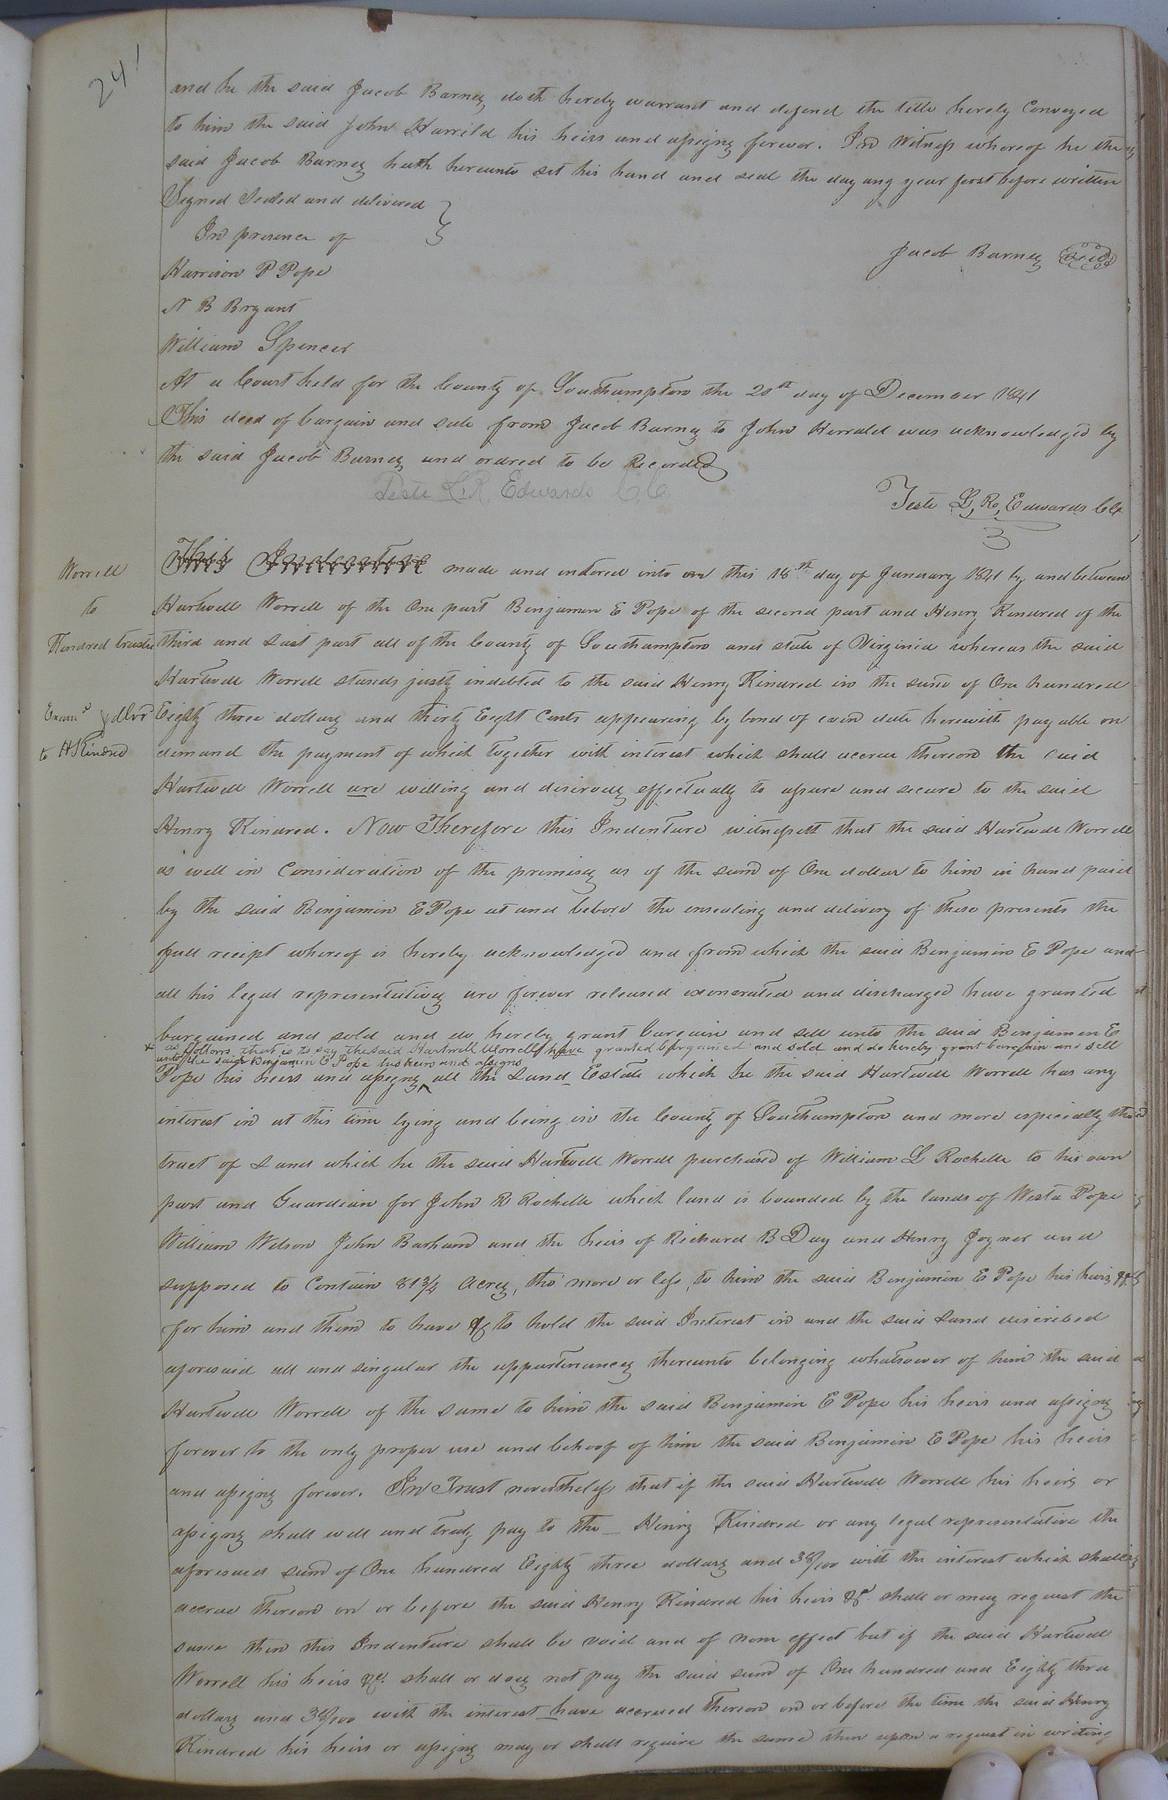 241
and he the said Jacob Barnes doth hereby warrant and defend the title hereby Conveyed
to him the said John Harrild his heirs and assigns forever. In Witness whereof he the
said Jacob Barnes hath hereunto set his hand and seal the day any year first before written
Signed Sealed and delivered
In presence of
Jacob Barnes Seal
Harrison P Pope
N B Bryant
William Spencer
At a Court held for the County of Southampton the 20th day of December 1841
This deed of bargain and sale from Jacob Barnes to John Harrald was acknowledged by
the said Jacob Barnes and ordred to be Recorded
Teste L. R. Edwards C C
Teste L, R, Edwards Clk
Worrell
to
Kindred trustee
Examd & dlvr
to H Kindred
This Indenture made and entered into on this 18th day of January 1841 by and between
Hartwell Worrell of the One part Benjamin E Pope of the second part and Henry Kindred of the
third and Last part all of the County of Southampton and state of Virginia whereas the said
Hartwell Worrell stands justly indebted to the said Henry Kindred in the sum of One hundred
Eighty three dollars and thirty Eight Cents appearing by bond of even date herewith payable on
demand the payment of which together with interest which shall accrue thereon the said
Hartwell Worrell are willing and desirous effectually to assure and secure to the said
Henry Kindred. Now Therefore this Indenture witnesseth that the said Hartwell Worrell
as well in Consideration of the premises as of the sum of One dollar to him in hand paid
by the said Benjamin E Pope at and before the ensealing and delivery of these presents the
full receipt whereof is hereby acknowledged and from which the said Benjamin E Pope and
all his legal representatives are forever released exonerated and discharged have granted
bargained and sold and do hereby grant bargain and sell unto the said Benjamin E
as follows that is to say the said Hartwell Worrell have granted bargained and sold and do hereby grant bargain and sell
unto the said Benjamin E Pope his heirs and assigns
Pope his heirs and assigns all the Land Estate which he the said Hartwell Worrell has any
interest in at this time lying and being in the County of Southampton and more especially that
tract of Land which he the said Hartwell Worrell purchased of William L Rochelle to his own
part and Guardian for John R Rochelle which land is bounded by the lands of Westa Pope
William Wilson John Barham and the heirs of Richard B Day and Henry Joyner and
supposed to Contain 81 3/4 Acres, tho more or less, to him the said Benjamin E Pope his heirs &c
for him and them to have & to hold the said Interest in and the said Land discribed
aforesaid all and singular the appurtenances thereunto belonging whatsoever of him the said
Hartwell Worrell of the same to him the said Benjamin E Pope his heirs and assigns
forever to the only proper use and behoof of him the said Benjamin E Pope his heirs
and assigns forever. In Trust nevertheless that if the said Hartwell Worrell his heirs or
assigns shall well and truly pay to the Henry Kindred or any legal representative the
aforesaid sum of One hundred Eighty three dollars and 38/100 with the interest which shall
accrue thereon on or before the said Henry Kindred his heirs &c. shall or may request the
same then this Indenture shall be void and of none effect but if the said Hartwell
Worrell his heirs &c. shall or does not pay the said sum of One hundred and Eighty three
dollars and 38/100 with the interest have accrued thereon on or before the time the said Henry
Kindred his heirs or assigns may or shall require the same then upon a request in writing